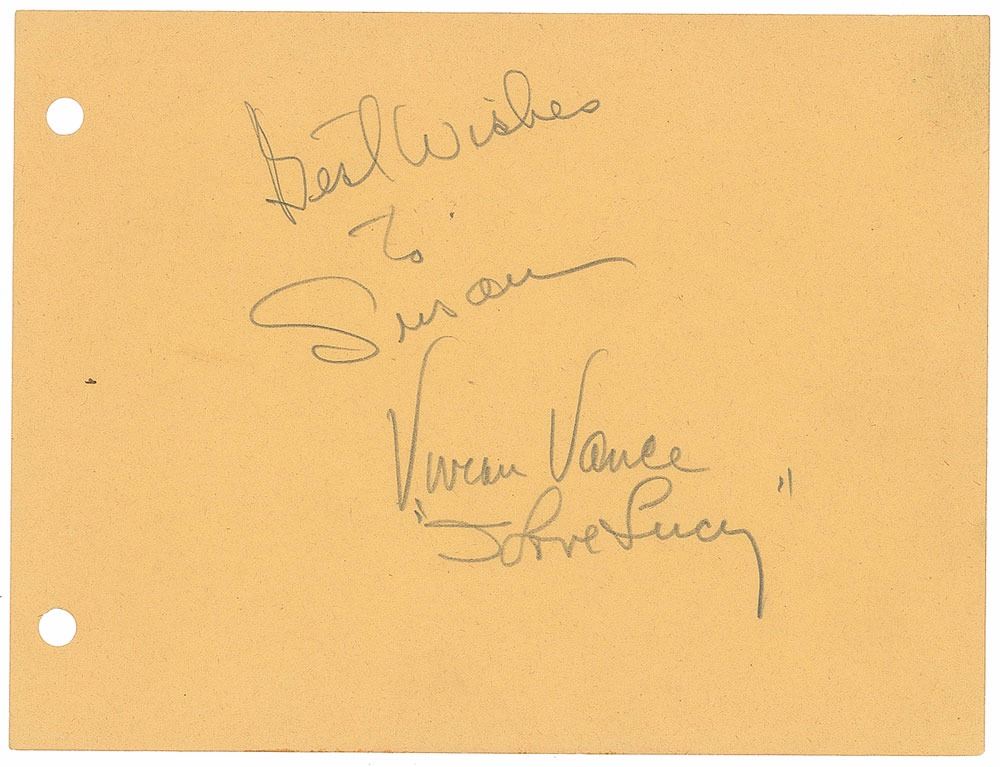 Best Wishes
to
Susan
Vivian Vance
"I Love Lucy"